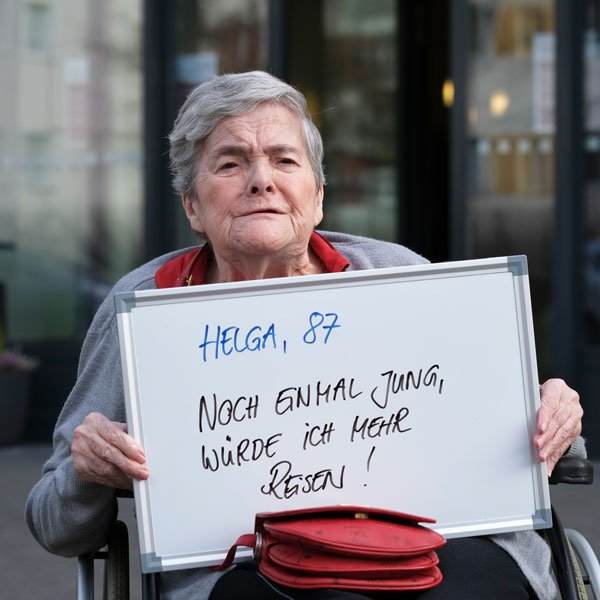 HELGA, 87
NOCH EINMAL JUNG,
WÜRDE ICH MEHR
REISEN!